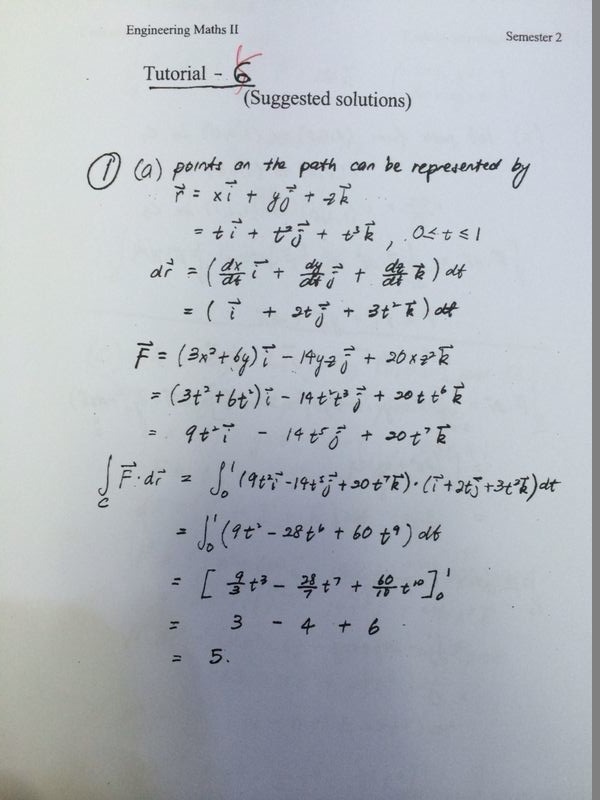 Engineering Maths II
Semester 2
Tutorial - 6
(Suggested solutions)
① (a) points on the path can be represented by
r⃗ = xi⃗ + yj⃗ + zk⃗
= ti⃗ + t²j⃗ + t³k⃗ , 0≤t≤1
dr⃗ = (dx/dt i⃗ + dy/dt j⃗ + dz/dt k⃗) dt
= ( i⃗ + 2tj⃗ + 3t²k⃗ ) dt
F⃗ = (3x²+6y)i⃗ - 14yzj⃗ + 20xz²k⃗
= (3t²+6t²)i⃗ - 14t²t³j⃗ + 20tt⁶k⃗
= 9t²i⃗ - 14t⁵j⃗ + 20t⁷k⃗
∫_C F⃗·dr⃗ = ∫₀¹ (9t²i⃗-14t⁵j⃗+20t⁷k⃗)·(i⃗+2tj⃗+3t²k⃗)dt
= ∫₀¹ (9t² - 28t⁶ + 60t⁹) dt
= [ 9/3 t³ - 28/7 t⁷ + 60/10 t¹⁰ ]₀¹
= 3 - 4 + 6
= 5.